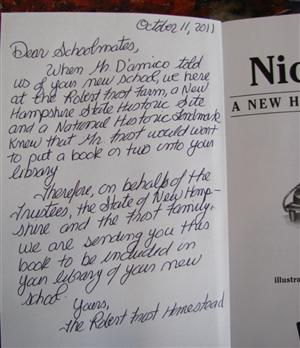 October 11, 2011
Dear Schoolmates,
When Mr. D'amico told
us of your new school, we here
at the Robert Frost Farm, a New
Hampshire State Historic Site
and a National Historic Landmark
knew that Mr. Frost would want
to put a book or two into your
library
Therefore, on behalf of the
Trustees, the State of New Hamp-
shire and the Frost Family,
we are sending you this
book to be included in
your library of your new
school.
Yours,
The Robert Frost Homestead
Nic
A NEW H
illustra